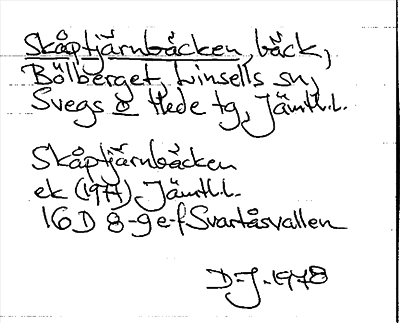 Skåptjärnbäcken, bäck,
Bölberget, Linsells sn,
Svegs o Hede tg, Jämtl.l.
Skåptjärnbäcken
ek (1977) Jämtl.l.
16D 8-9 e-f Svartåsvallen
D-J. 1978